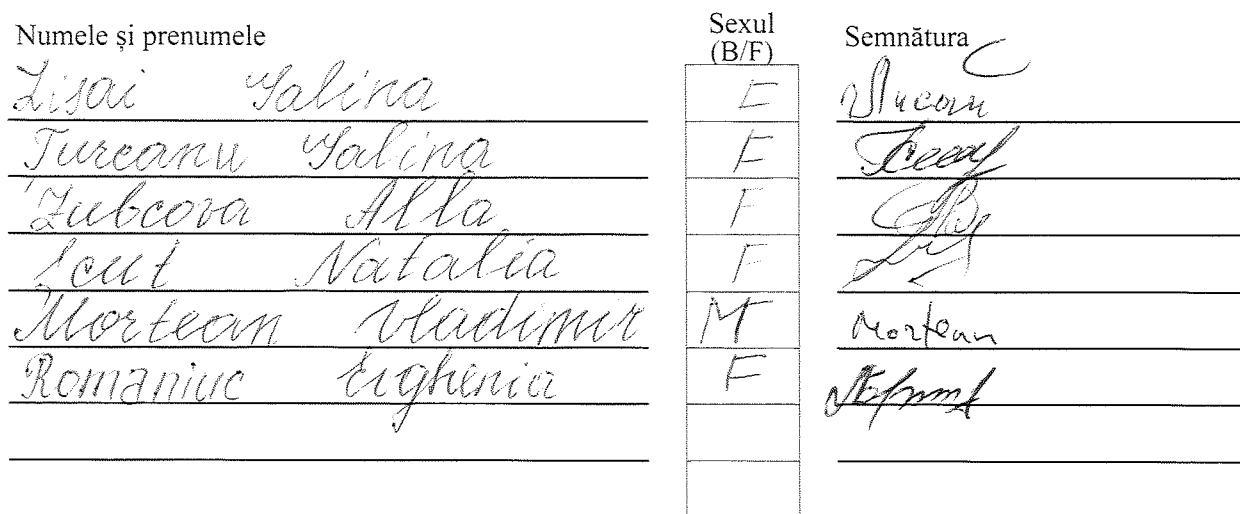 Numele și prenumele Sexul (B/F) Semnătura
Lisai Galina F
Turcanu Galina F
Zubcova Alla F
Scut Natalia F
Mortean Vladimir M Mortean
Romaniuc Evghenia F